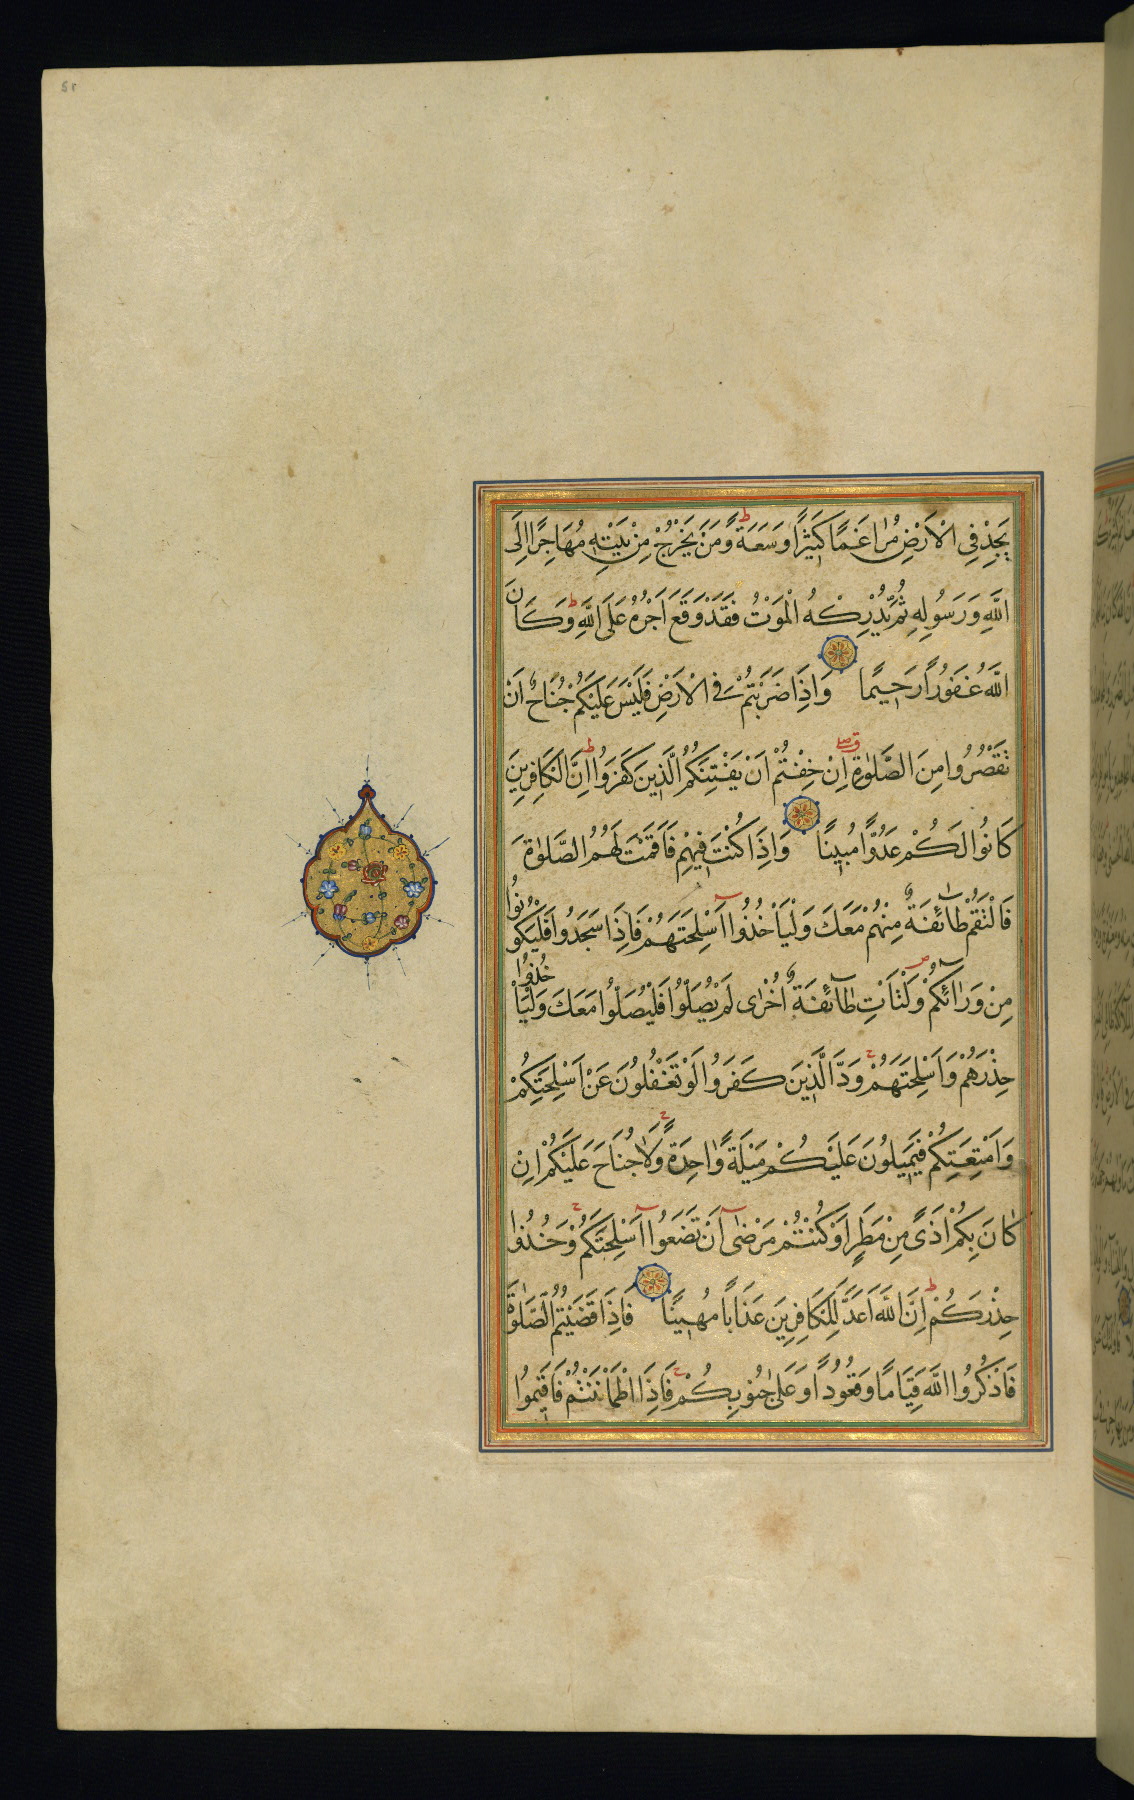 يَجِدْ فِي الْاَرْضِ مُرَاغَمًا كَثِيرًا وَسَعَةً ط وَمَنْ يَخْرُجْ مِنْ بَيْتِهِ مُهَاجِرًا اِلَى
اللَّهِ وَرَسُولِهِ ثُمَّ يُدْرِكْهُ الْمَوْتُ فَقَدْ وَقَعَ اَجْرُهُ عَلَى اللَّهِ ط وَكَانَ
اللَّهُ غَفُورًا رَحِيمًا وَاِذَا ضَرَبْتُمْ فِي الْاَرْضِ فَلَيْسَ عَلَيْكُمْ جُنَاحٌ اَنْ
تَقْصُرُوا مِنَ الصَّلٰوةِ اِنْ خِفْتُمْ اَنْ يَفْتِنَكُمُ الَّذِينَ كَفَرُوا ط اِنَّ الْكَافِرِينَ
كَانُوا لَكُمْ عَدُوًّا مُبِينًا وَاِذَا كُنْتَ فِيهِمْ فَاَقَمْتَ لَهُمُ الصَّلٰوةَ
فَالْتَقُمْ طَائِفَةٌ مِنْهُمْ مَعَكَ وَلْيَاْخُذُوا اَسْلِحَتَهُمْ فَاِذَا سَجَدُوا فَلْيَكُونُوا
مِنْ وَرَائِكُمْ ص وَلْتَاْتِ طَائِفَةٌ اُخْرٰى لَمْ يُصَلُّوا فَلْيُصَلُّوا مَعَكَ وَلْيَاْخُذُوا
حِذْرَهُمْ وَاَسْلِحَتَهُمْ ج وَدَّ الَّذِينَ كَفَرُوا لَوْ تَغْفُلُونَ عَنْ اَسْلِحَتِكُمْ
وَاَمْتِعَتِكُمْ فَيَمِيلُونَ عَلَيْكُمْ مَيْلَةً وَاحِدَةً ج وَلَا جُنَاحَ عَلَيْكُمْ اِنْ
كَانَ بِكُمْ اَذًى مِنْ مَطَرٍ اَوْ كُنْتُمْ مَرْضٰى اَنْ تَضَعُوا اَسْلِحَتَكُمْ ج وَخُذُوا
حِذْرَكُمْ ط اِنَّ اللَّهَ اَعَدَّ لِلْكَافِرِينَ عَذَابًا مُهِينًا فَاِذَا قَضَيْتُمُ الصَّلٰوةَ
فَاذْكُرُوا اللَّهَ قِيَامًا وَقُعُودًا وَعَلٰى جُنُوبِكُمْ ج فَاِذَا اطْمَاْنَنْتُمْ فَاَقِيمُوا